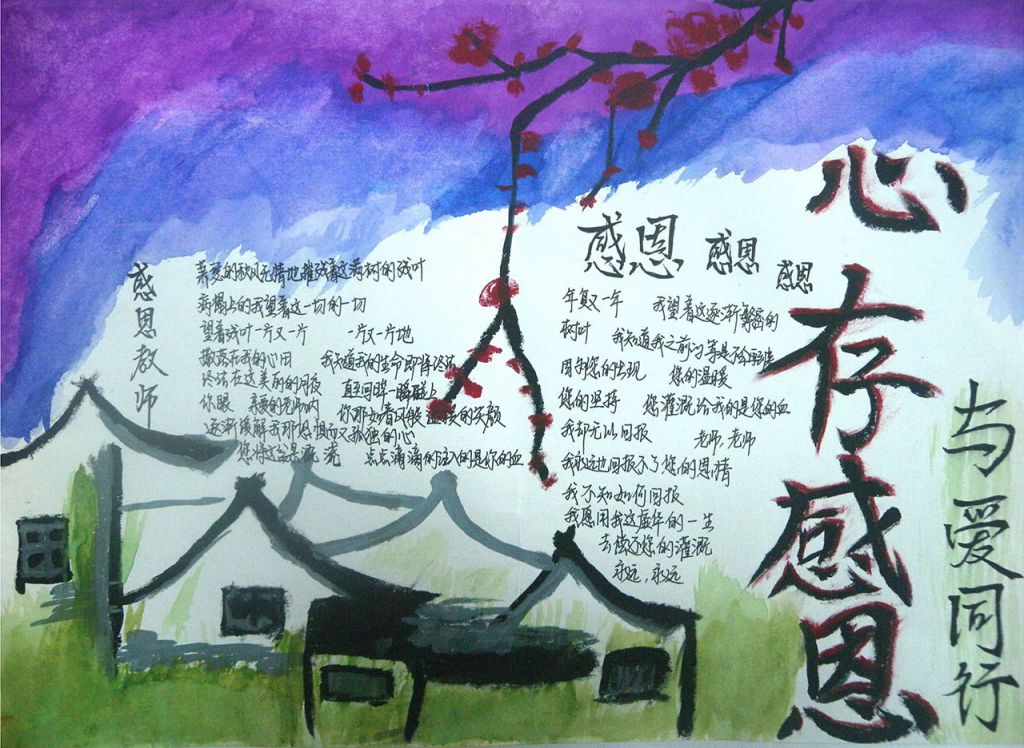 心存感恩
与爱同行
感恩教师
萧瑟的秋风无情地摧残着这满树的残叶
病榻上的我望着这一切的一切
望着残叶一片又一片 一片又一片地
散落在我的心田 我知道我的生命即将终结
终结在这美丽的月夜
你眼
那如春风般温暖的笑颜
逐渐缓解我那恐惧而又孤独的心
点点滴滴的注入的是你的血
感恩 感恩 感恩
年复一年 我望着这逐渐繁密的
树叶 我知道我之前的等是
用到您的出现 您的温暖
您的坚持 您灌溉给我的是您的血
我却无以回报 老师,老师
我永远也回报不了您的恩情
我不知如何回报
我愿用我这虚华的一生
去偿还您的灌溉
永远,永远